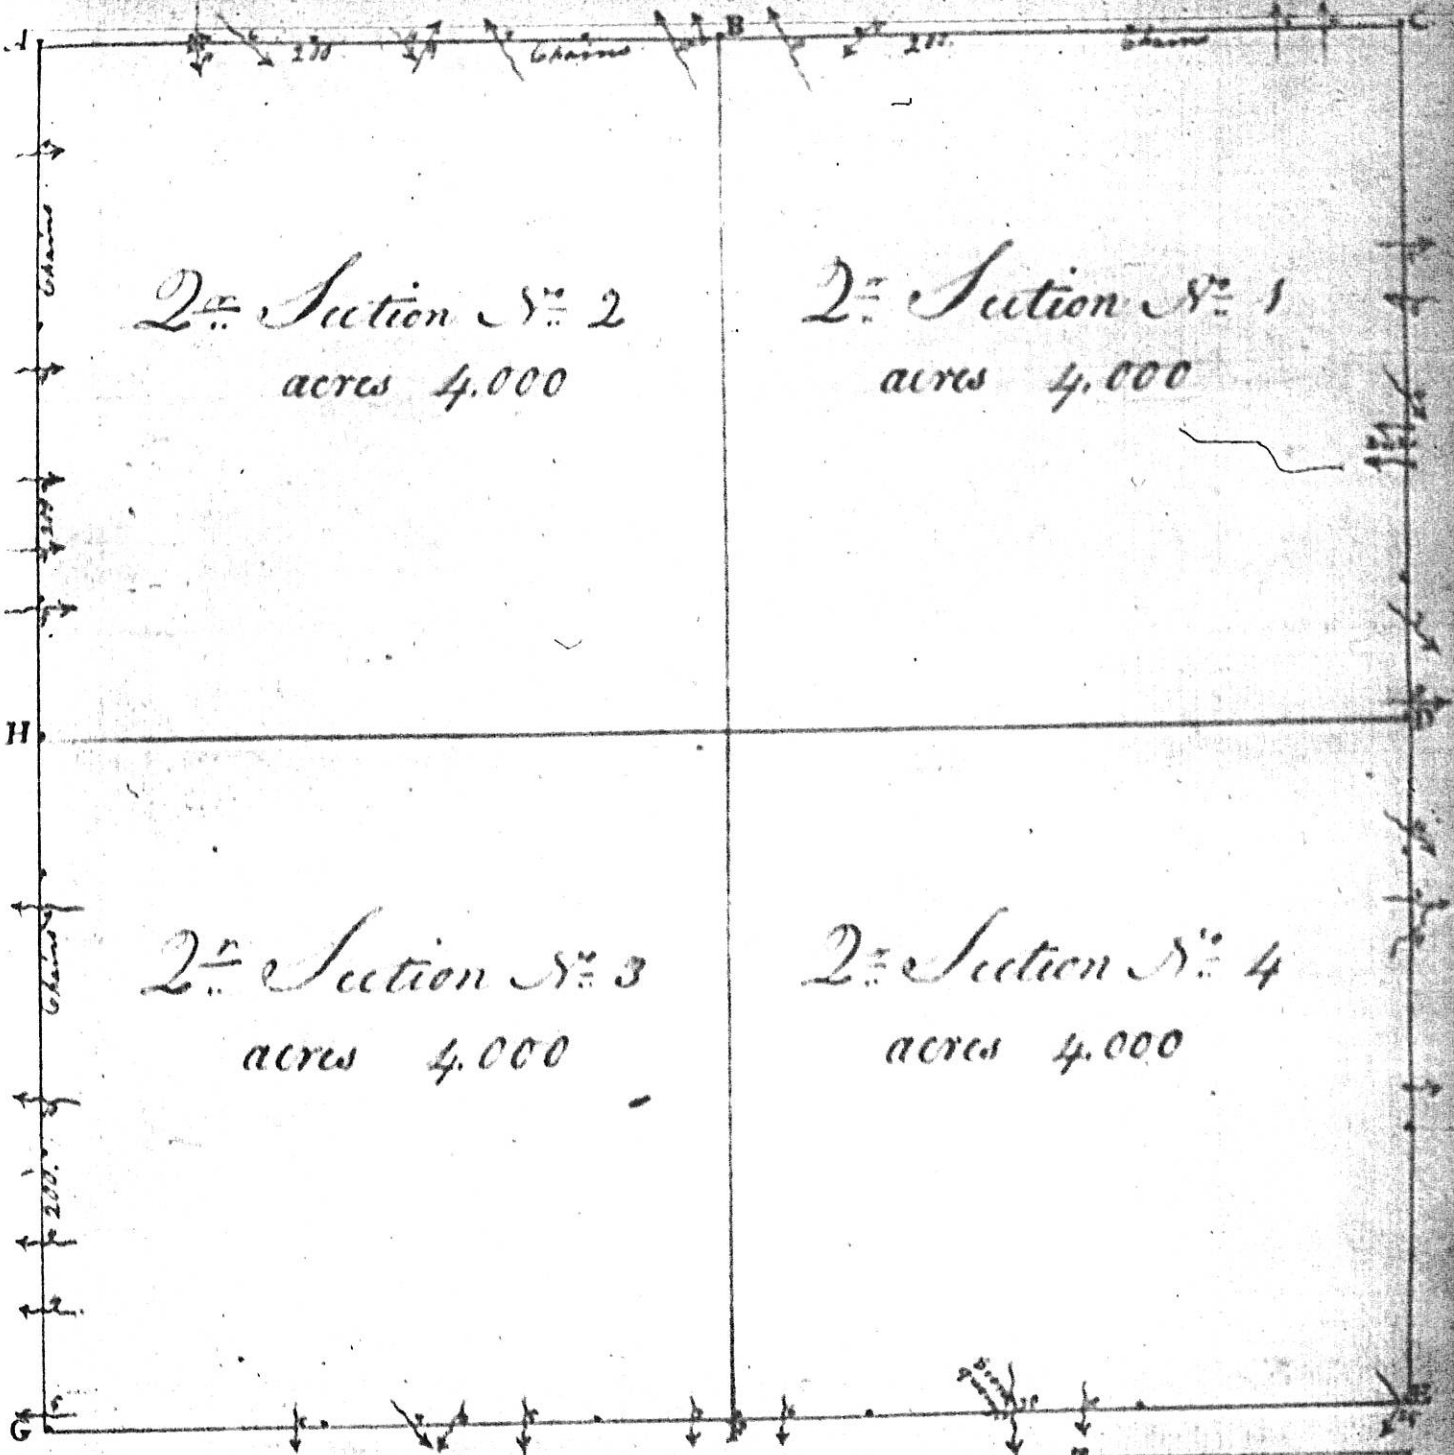 A
200
Chains
B
200
Chains
C
Chains
Qr Section No 2
acres 4.000
Qr Section No 1
acres 4.000
H
D
Qr Section No 3
acres 4.000
Qr Section No 4
acres 4.000
Chains
200.
G